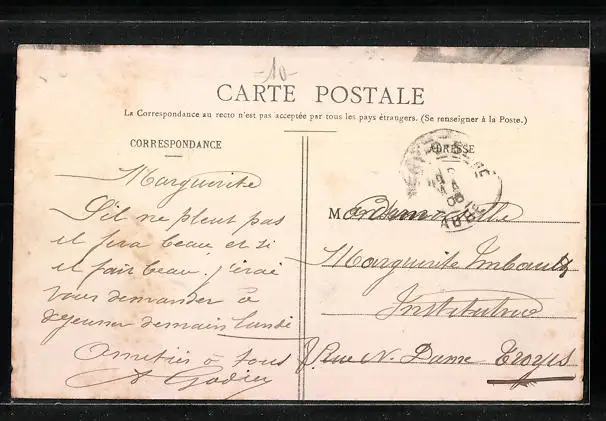 -10-
CARTE POSTALE
La Correspondance au recto n'est pas acceptée par tous les pays étrangers. (Se renseigner à la Poste.)
CORRESPONDANCE
ADRESSE
Marguerite
S'il ne pleut pas
il fera beau et si
il fait beau j'irai
vous demander à
dejeuner demain lundi
Amitiés à tous
Mademoiselle
Marguerite Imbault
Institutrice
Rue N. Dame Troyes
08
AUBE